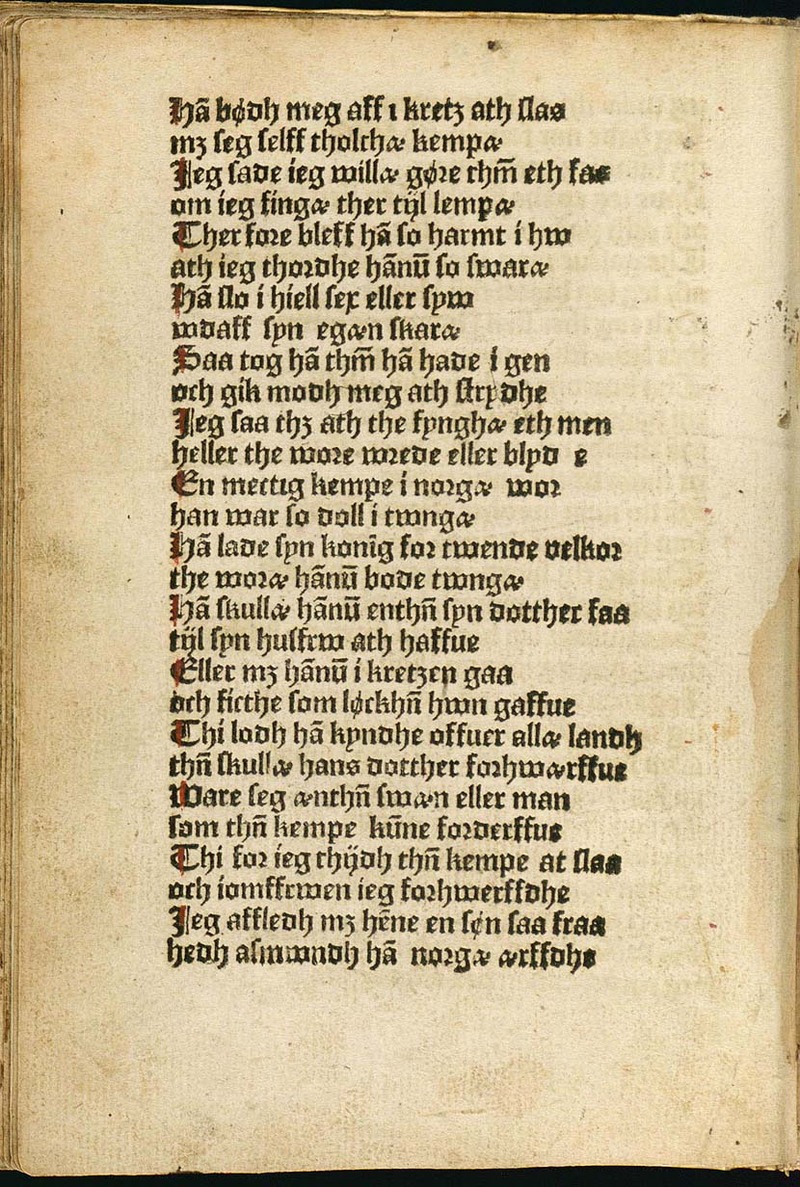 Hā bødh meg aff i kretz ath slaa
mꝫ seg selff tholchæ kempæ
Jeg sade ieg willæ gøre thm̄ eth faa
om ieg fingæ ther tijl lempæ
Ther fore bleff hā so harmt i hw
ath ieg thordhe hānū so swaræ
Hā slo i hiell sex eller syw
wdaff syn egæn skaræ
Saa tog hā thm̄ hā hade i gen
och gik modh meg ath strydhe
Jeg saa thꝫ ath the fynghæ eth men
heller the wore wrede eller blyd e
En mectig kempe i norgæ wor
han war so doll i twngæ
Hā lade syn konīg for twende velkor
the woræ hānū bode twngæ
Hā skullæ hānū enthn̄ syn dotther faa
tijl syn husfrw ath haffue
Eller mꝫ hānū i kretzen gaa
och ficthe som løckhn̄ hwn gaffue
Thi lodh hā kyndhe offuer allæ landh
thn̄ skullæ hans dotther forhwærffue
Ware seg ænthn̄ swæn eller man
som thn̄ kempe kūne forderffue
Thi for ieg thijdh thn̄ kempe at slaa
och iomffrwen ieg forhwerffdhe
Jeg affledh mꝫ hēne en søn saa fraa
hedh asmwndh hā norgæ ærffdhe